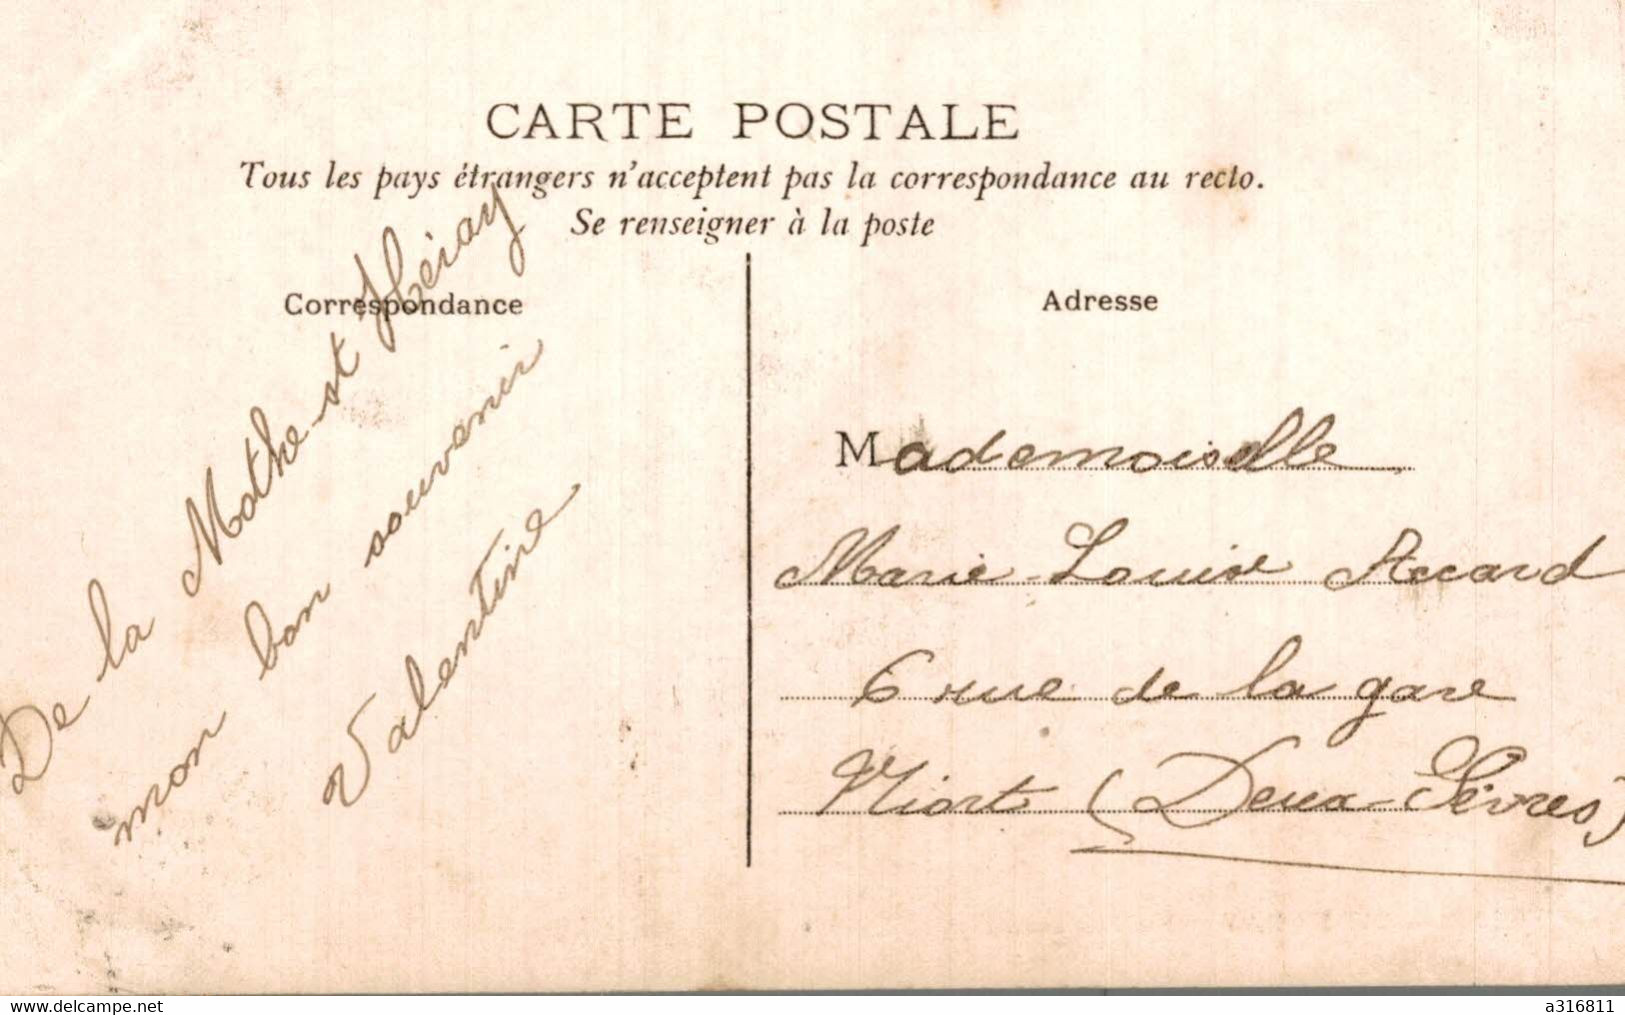 CARTE POSTALE
Tous les pays étrangers n'acceptent pas la correspondance au recto.
Se renseigner à la poste
Correspondance
De la Mothe-st Héray
mon bon souvenir
Valentine
Adresse
Mademoiselle
Marie-Louise Accard
6 rue de la gare
Niort (Deux-Sèvres)
www.delcampe.net
a316811